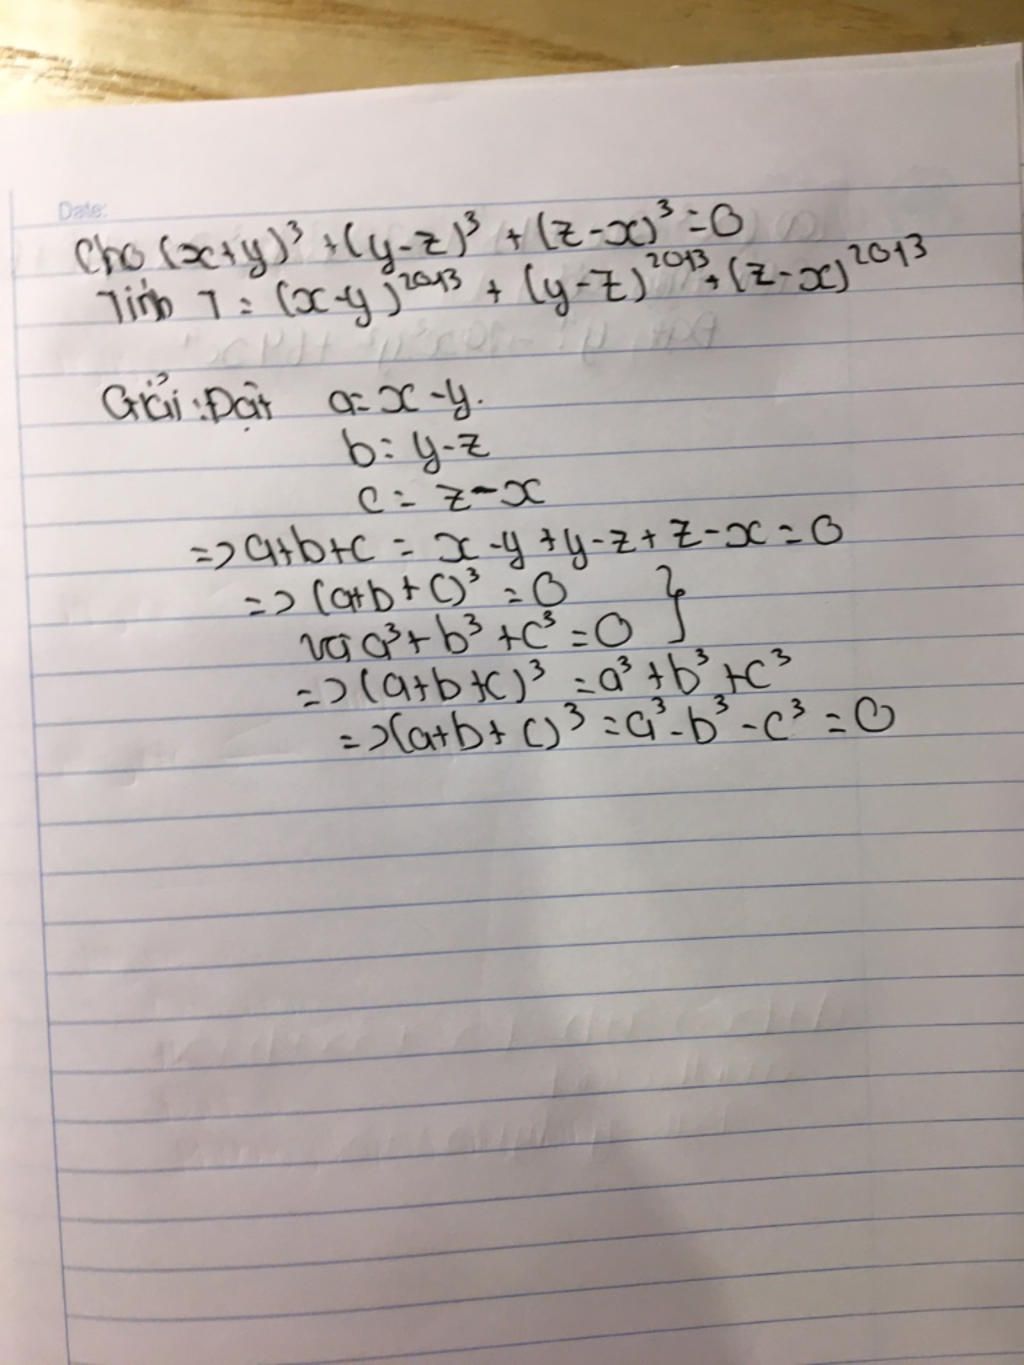 Date:
Cho (x+y)³ + (y-z)³ + (z-x)³ = 0
Tính T = (x-y)²⁰¹³ + (y-z)²⁰¹³ + (z-x)²⁰¹³
Giải: Đặt a = x-y.
b = y-z
c = z-x
=> a+b+c = x-y+y-z+z-x = 0
=> (a+b+c)³ = 0 }
và a³+b³+c³ = 0
=> (a+b+c)³ = a³+b³+c³
=> (a+b+c)³ = a³-b³-c³ = 0